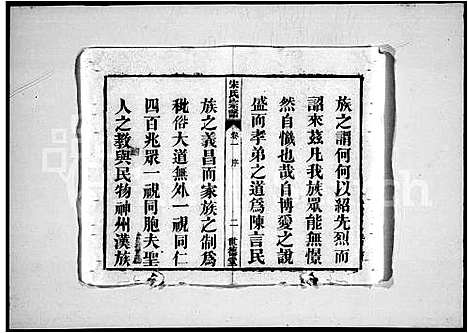 族之謂何何以紹先烈而
詔來茲凡我族眾能無憬
然自懺也哉自博愛之說
盛而孝弟之道為陳言民
宋氏宗譜
卷一 序
二
世德堂
族之義昌而家族之制為
秕俗大道無外一視同仁
四百兆眾一視同胞夫聖
人之教與民物神州漢族